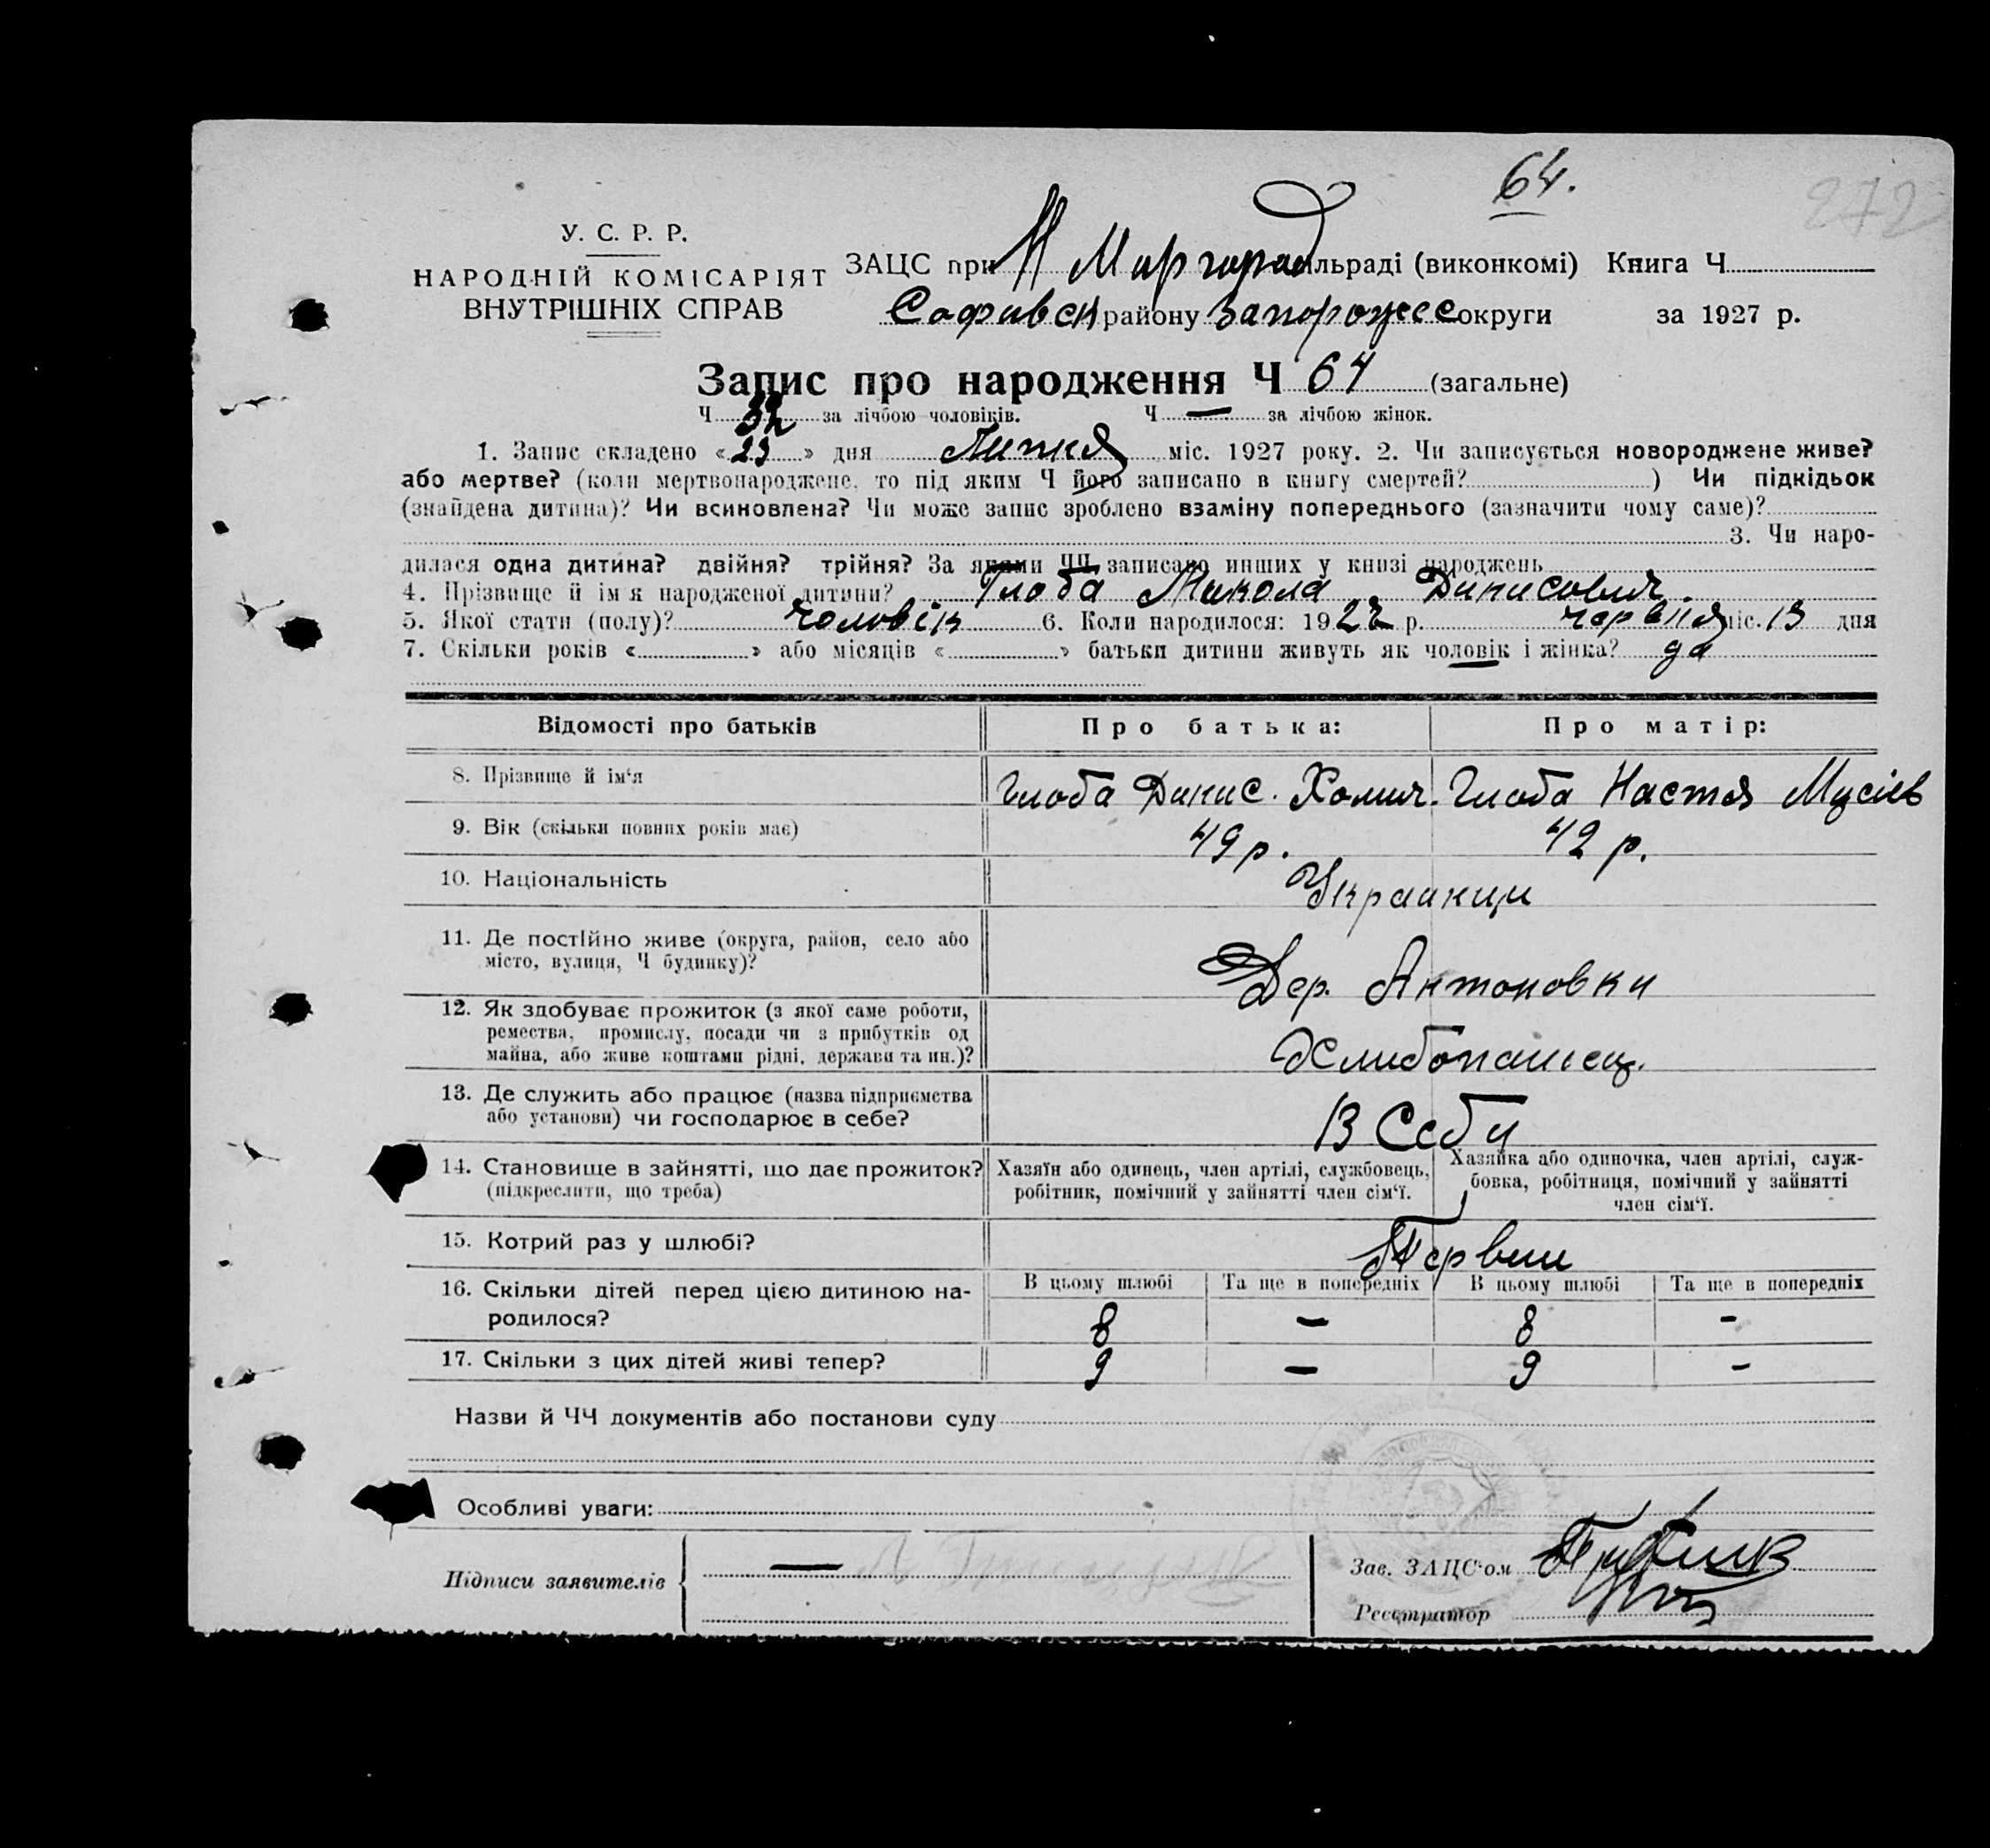 64.
272
У. С. Р. Р.
НАРОДНІЙ КОМІСАРІЯТ
ВНУТРІШНІХ СПРАВ
ЗАЦС при Н Миргород сільраді (виконкомі) Книга Ч
Софиевск району Запорожес округи за 1927 р.
Запис про народження Ч 64 (загальне)
Ч 32 за лічбою чоловіків. Ч — за лічбою жінок.
1. Запис складено «23» дня Липня міс. 1927 року. 2. Чи записується новороджене живе?
або мертве? (коли мертвонароджене, то під яким Ч його записано в книгу смертей? ) Чи підкідьок
(знайдена дитина)? Чи всиновлена? Чи може запис зроблено взаміну попереднього (зазначити чому саме)?
3. Чи наро-
дилася одна дитина? двійня? трійня? За якими ЧЧ записано инших у книзі народжень
4. Прізвище й ім'я народженої дитини? Глоба Микола Динисович.
5. Якої стати (полу)? Чоловік 6. Коли народилося: 1927 р. червня міс. 13 дня
7. Скільки років « » або місяців « » батьки дитини живуть як чоловік і жінка? да
Відомості про батьків Про батька: Про матір:
8. Прізвище й ім'я Глоба Динис. Хомич. Глоба Настя Мусіев
9. Вік (скільки повних років має) 49 р. 42 р.
10. Національність Украинци
11. Де постійно живе (округа, район, село або
місто, вулиця, Ч будинку)? Дер. Антоновки
12. Як здобуває прожиток (з якої саме роботи,
ремества, промислу, посади чи з прибутків од
майна, або живе коштами рідні, держави та ин.)? Хлибопашец.
13. Де служить або працює (назва підприємства
або установи) чи господарює в себе? В Себи
14. Становище в зайнятті, що дає прожиток?
(підкреслити, що треба)
Хазяїн або одинець, член артілі, службовець,
робітник, помічний у зайнятті член сім'ї.
Хазяйка або одиночка, член артілі, служ-
бовка, робітниця, помічний у зайнятті
член сім'ї.
15. Котрий раз у шлюбі? Первий
16. Скільки дітей перед цією дитиною на-
родилося?
В цьому шлюбі Та ще в попередніх В цьому шлюбі Та ще в попередніх
8 — 8 -
17. Скільки з цих дітей живі тепер? 9 — 9 -
Назви й ЧЧ документів або постанови суду
Особливі уваги:
Підписи заявителів —
Зав. ЗАЦС'ом
Реєстратор